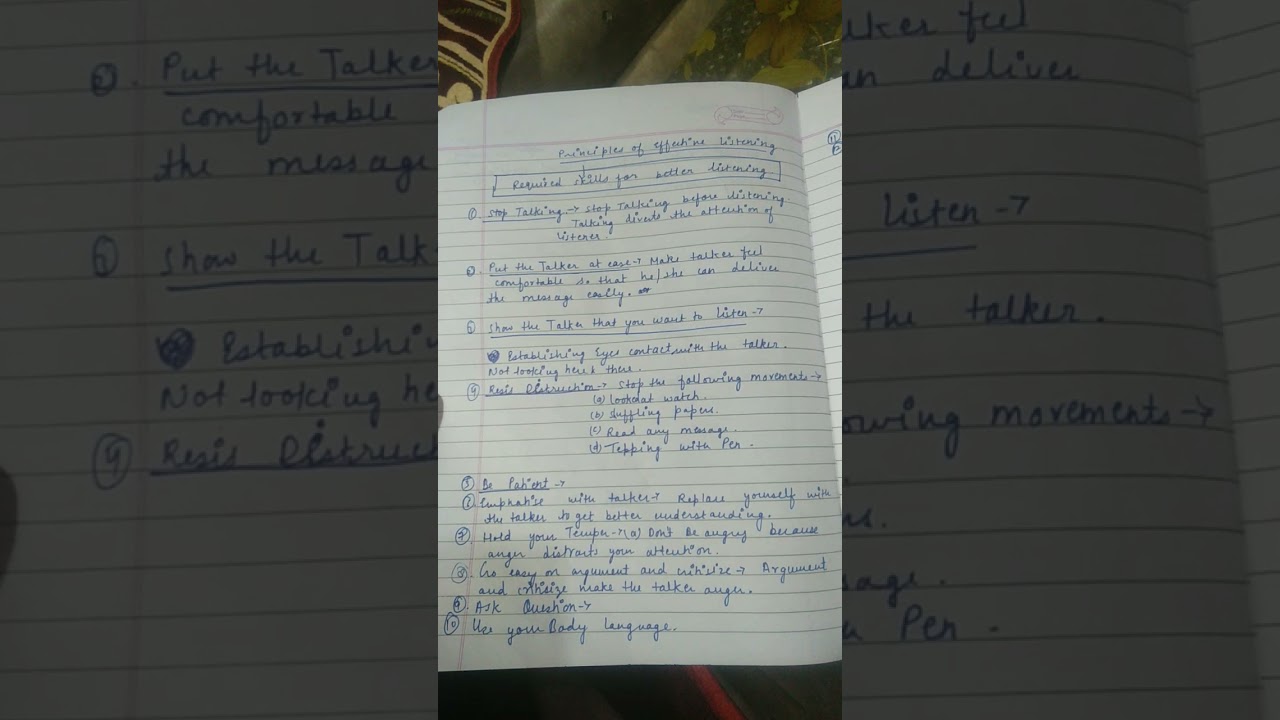 Principles of Effective listening
Required skills for better listening
① Stop Talking → Stop Talking before listening.
Talking diverts the attention of
listener.
②. Put the Talker at ease → Make talker feel
comfortable so that he/she can deliver
the message easily.
③ Show the Talker that you want to listen →
Establishing Eyes contact with the talker.
Not looking here & there.
④ Resis Distruction → Stop the following movements →
(a) Look at watch.
(b) Suffling papers.
(c) Read any message.
(d) Tepping with Pen.
⑤ Be Patient →
⑥ Emphathise with talker → Replace yourself with
the talker to get better understanding.
⑦. Hold your Temper → (a) Don't Be angry because
anger distracts your attention.
⑧. Go easy on argument and critisize → Argument
and critisize make the talker anger.
⑨. Ask Question →
⑩ Use your Body language.
⑪